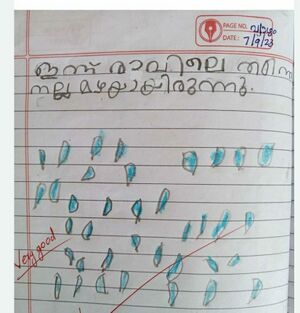 PAGE NO.
DATE: 7/9/23
ഇന്ന് രാവിലെ
നല്ല മഴയായിരുന്നു.
Very good